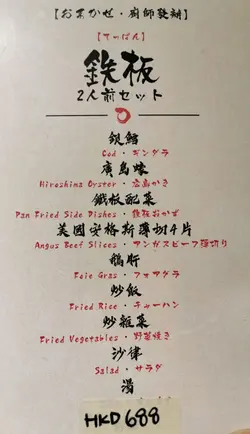 【おまかせ・廚師發辦】
【てっぱん】
鉄板
2人前セット
銀鱈
Cod・ギンダラ
廣島蠔
Hiroshima Oyster・広島かき
鐵板配菜
Pan Fried Side Dishes・鉄板おかず
美國安格斯薄切4片
Angus Beef Slices・アンガスビーフ薄切り
鵝肝
Foie Gras・フォアグラ
炒飯
Fried Rice・チャーハン
炒雜菜
Fried Vegetables・野菜焼き
沙律
Salad・サラダ
湯
HKD 688